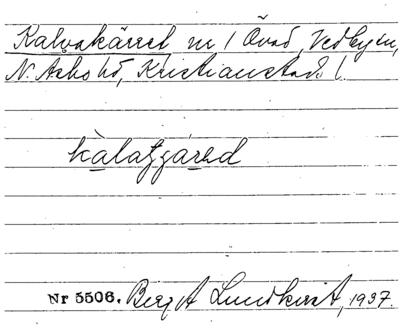 Kalvakärret nr 1 Övad, Vedbyn,
N. Åsbo hd, Kristianstads l.
kalaʒʒáred
Nr 5506. Bergt Lundkvist, 1937.